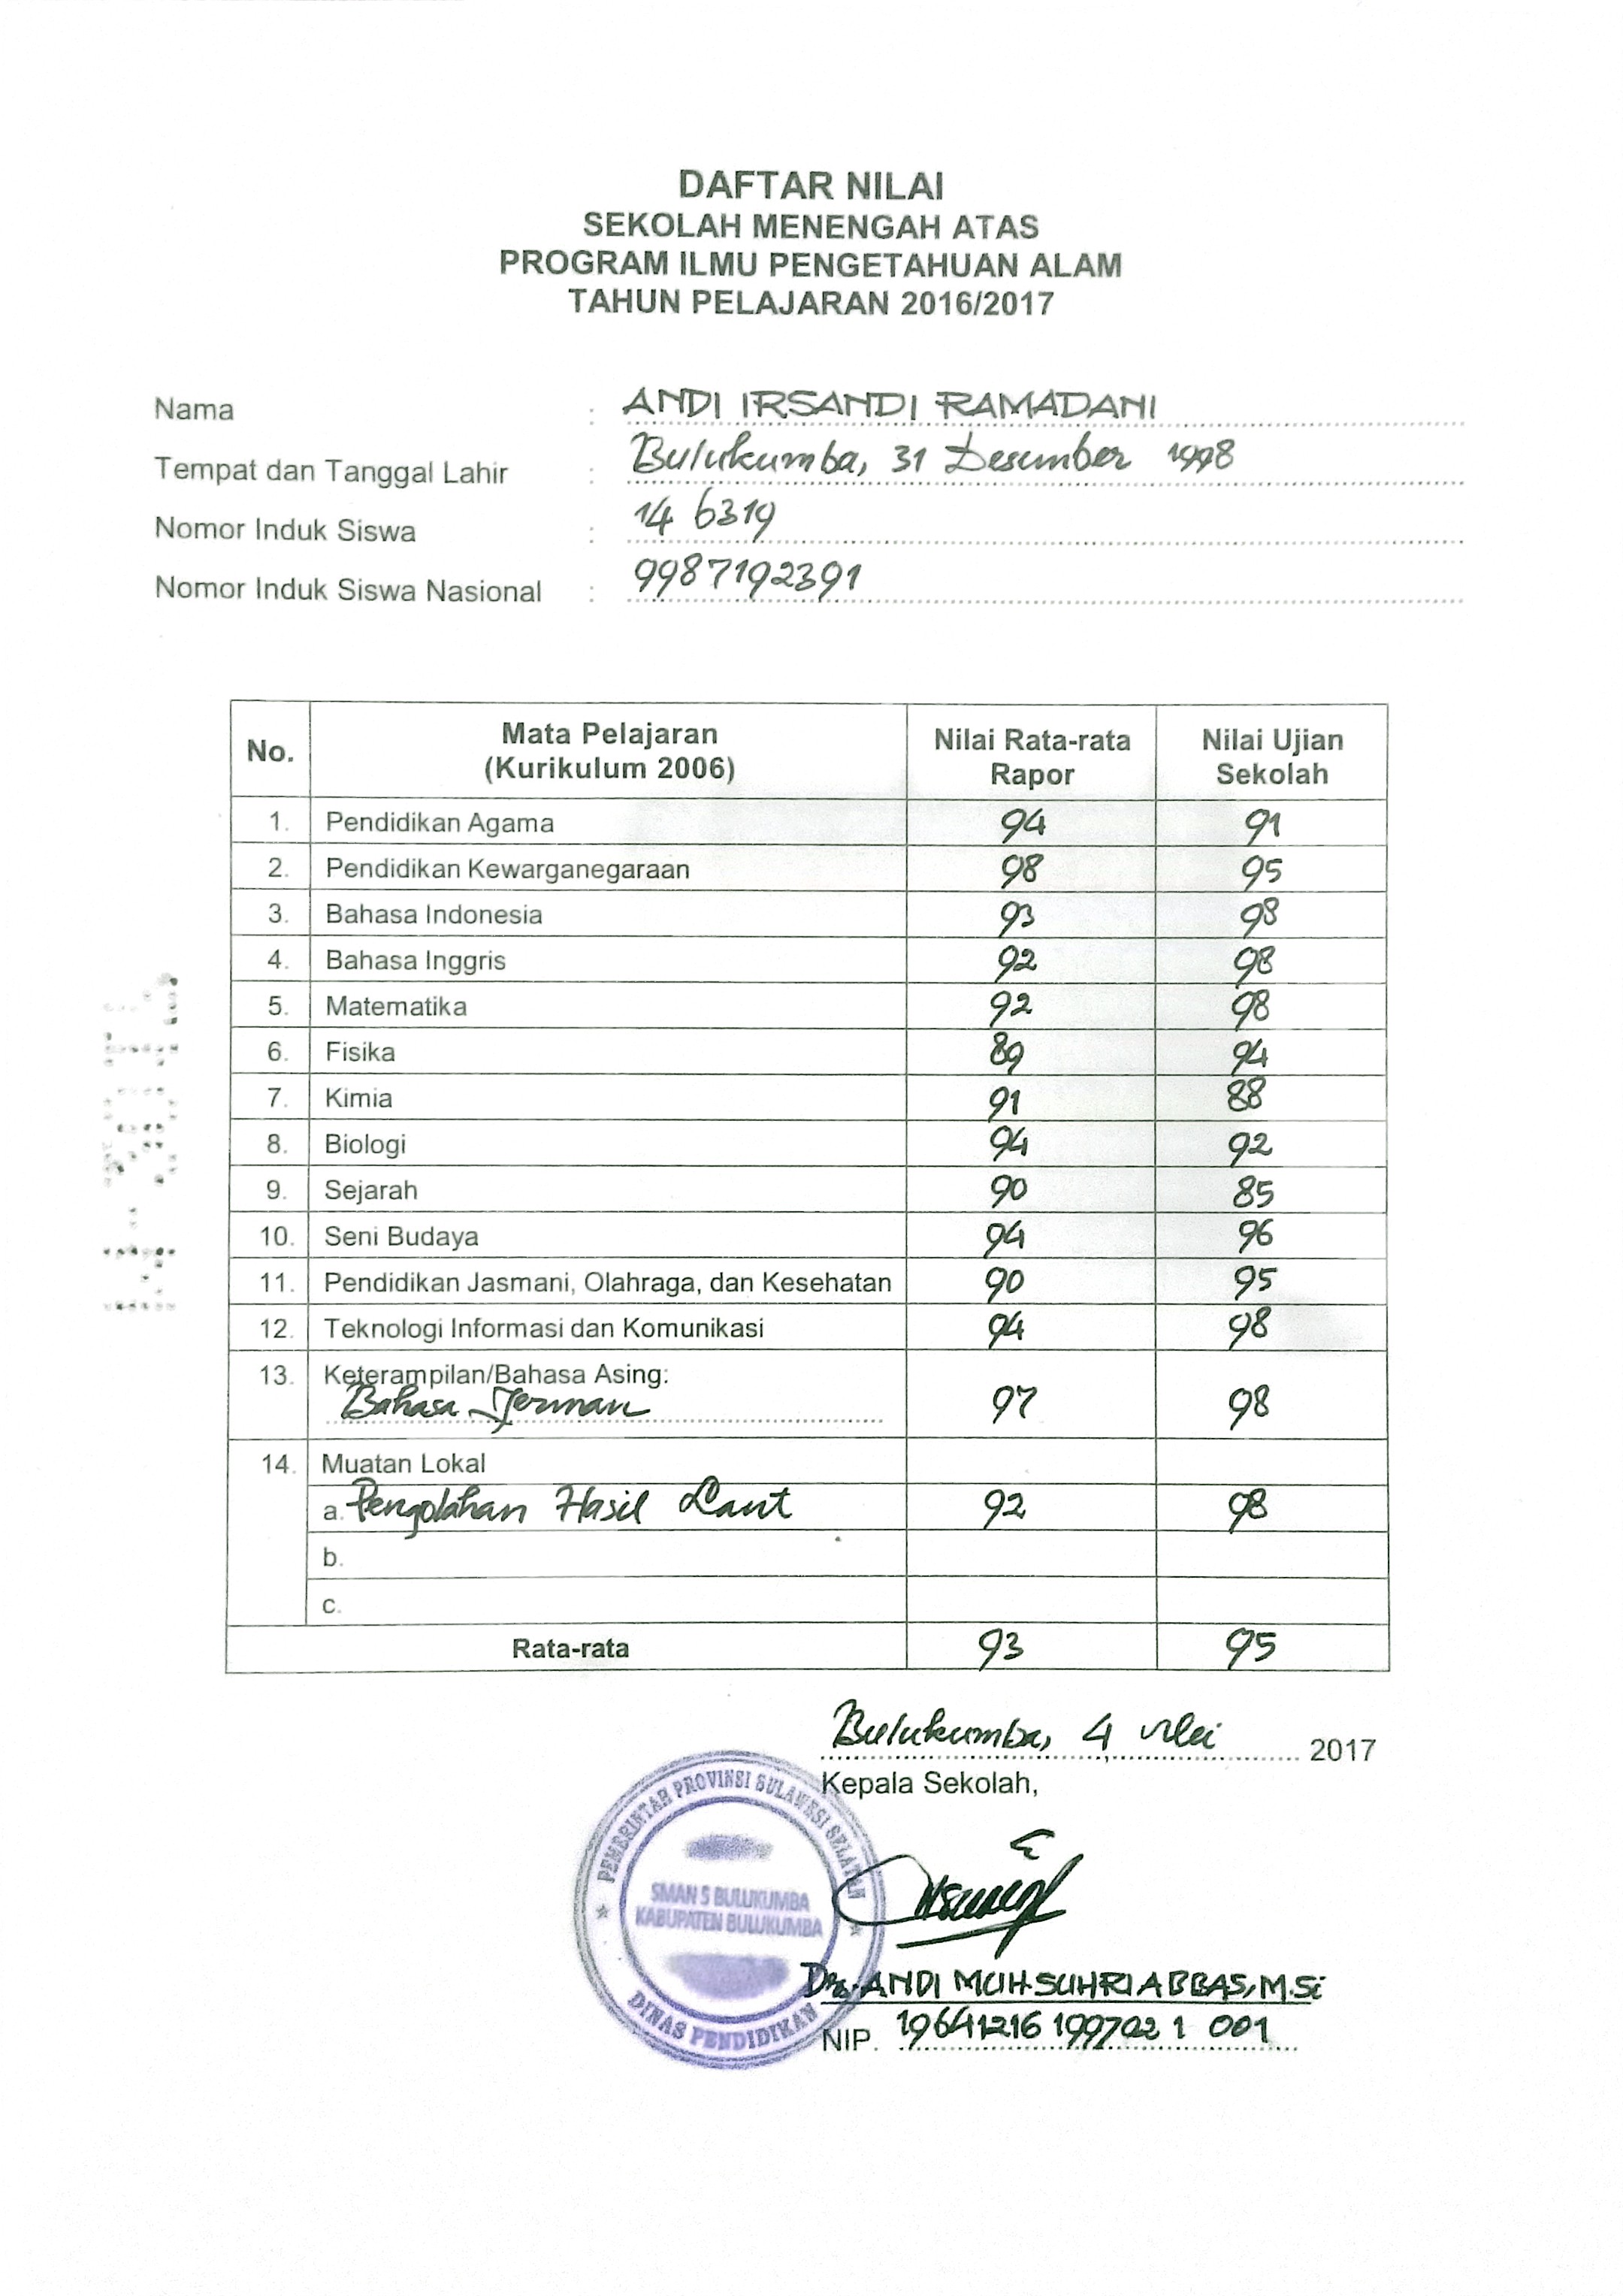 DAFTAR NILAI
SEKOLAH MENENGAH ATAS
PROGRAM ILMU PENGETAHUAN ALAM
TAHUN PELAJARAN 2016/2017
Nama : ANDI IRSANDI RAMADANI
Tempat dan Tanggal Lahir : Bulukumba, 31 Desember 1998
Nomor Induk Siswa : 14 6319
Nomor Induk Siswa Nasional : 9987192391
No. Mata Pelajaran (Kurikulum 2006) Nilai Rata-rata Rapor Nilai Ujian Sekolah
1. Pendidikan Agama 94 91
2. Pendidikan Kewarganegaraan 98 95
3. Bahasa Indonesia 93 98
4. Bahasa Inggris 92 98
5. Matematika 92 98
6. Fisika 89 94
7. Kimia 91 88
8. Biologi 94 92
9. Sejarah 90 85
10. Seni Budaya 94 96
11. Pendidikan Jasmani, Olahraga, dan Kesehatan 90 95
12. Teknologi Informasi dan Komunikasi 94 98
13. Keterampilan/Bahasa Asing:
Bahasa Jerman 97 98
14. Muatan Lokal
a. Pengolahan Hasil Laut 92 98
b.
c.
Rata-rata 93 95
Bulukumba, 4 Mei 2017
Kepala Sekolah,
PEMERINTAH PROVINSI SULAWESI SELATAN
SMAN 5 BULUKUMBA
KABUPATEN BULUKUMBA
DINAS PENDIDIKAN
Drs. ANDI MUH. SUHRI ABBAS, M.Si
NIP. 19641216 199702 1 001